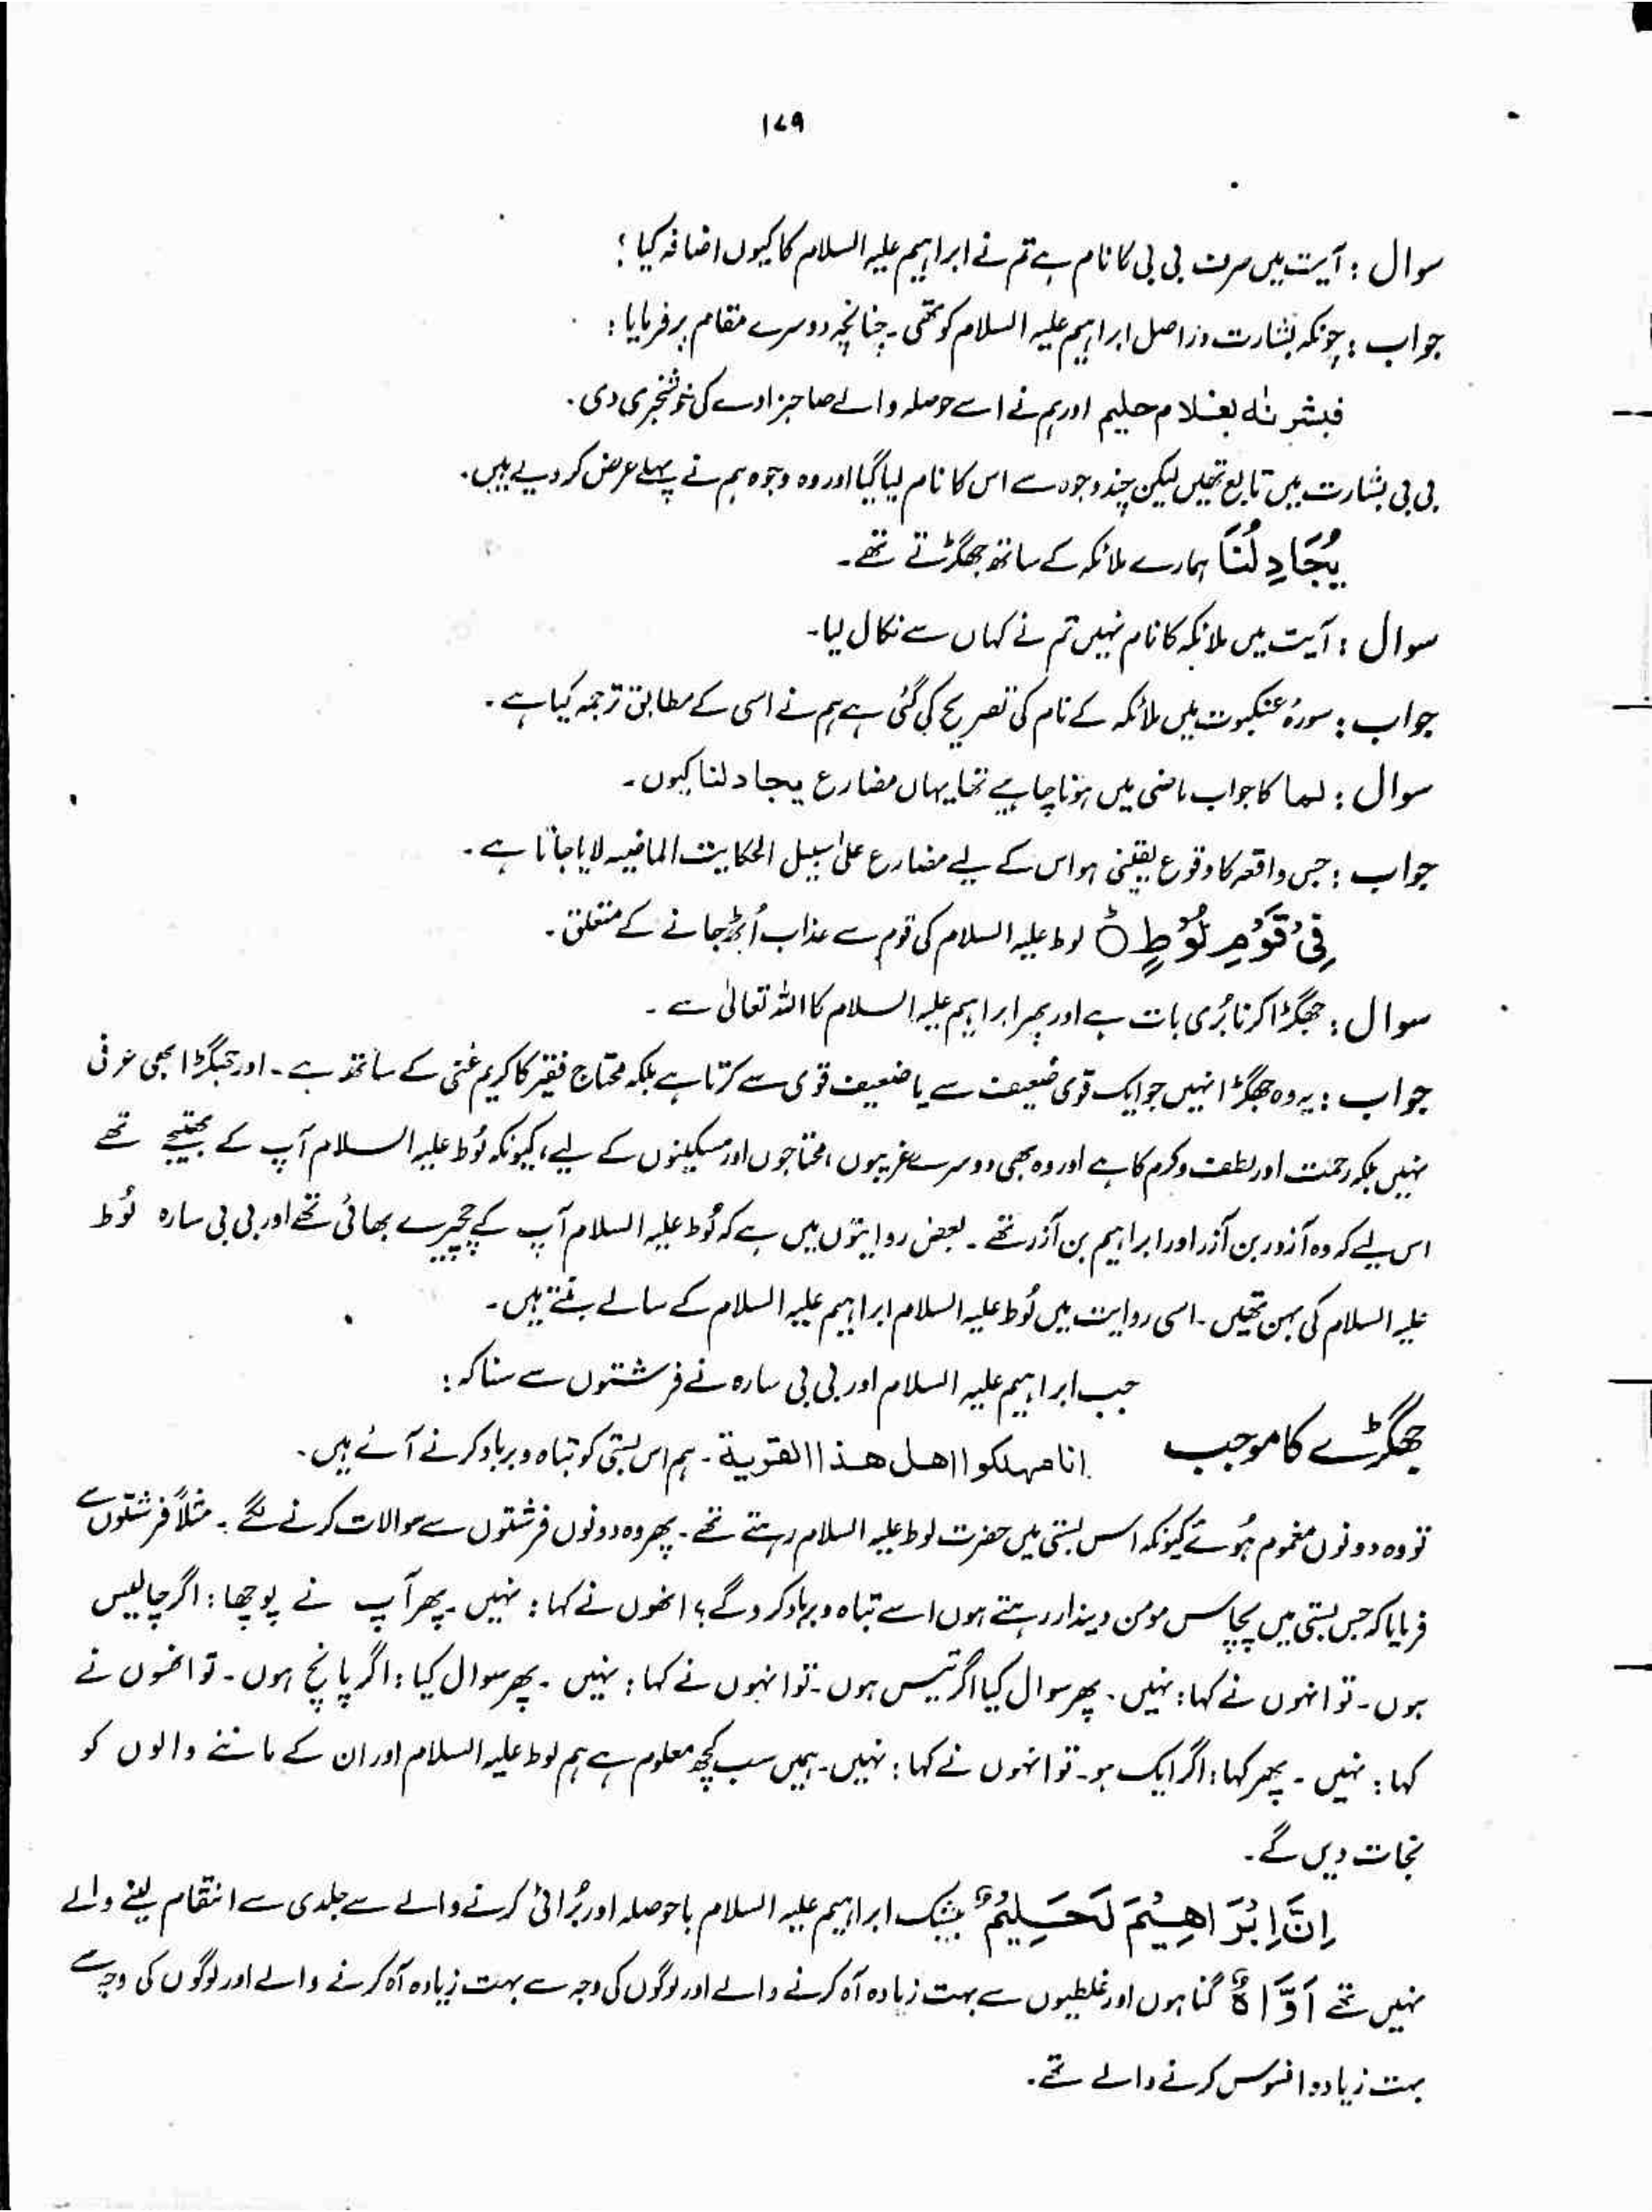 ۱۷۹
سوال : آیت میں صرف بی بی کا نام ہے تم نے ابراہیم علیہ السلام کا کیوں اضافہ کیا ؟
جواب : چونکہ بشارت دراصل ابراہیم علیہ السلام کو تھی ۔ چنانچہ دوسرے مقام پر فرمایا :
فبشرنٰہ بغلام حلیم اور ہم نے اسے حوصلہ والے صاحبزادے کی خوشخبری دی ۔
بی بی بشارت میں تابع تھیں لیکن چند وجوہ سے اس کا نام لیا گیا اور وہ وجوہ ہم نے پہلے عرض کر دیے ہیں ۔
یُجَادِلُنَا ہمارے ملائکہ کے ساتھ جھگڑتے تھے ۔
سوال : آیت میں ملائکہ کا نام نہیں تم نے کہاں سے نکال لیا ۔
جواب : سورۂ عنکبوت میں ملائکہ کے نام کی تصریح کی گئی ہے ہم نے اسی کے مطابق ترجمہ کیا ہے ۔
سوال : لما کا جواب ماضی میں ہونا چاہیے تھا یہاں مضارع یجادلنا کیوں ۔
جواب : جس واقعہ کا وقوع یقینی ہو اس کے لیے مضارع علیٰ سبیل الحکایت الماضیہ لایا جاتا ہے ۔
فِیْ قَوْمِ لُوْطٍ ○ لوط علیہ السلام کی قوم سے عذاب اُٹھ جانے کے متعلق ۔
سوال : جھگڑا کرنا بُری بات ہے اور پھر ابراہیم علیہ السلام کا اللہ تعالیٰ سے ۔
جواب : یہ وہ جھگڑا نہیں جو ایک قوی ضعیف سے یا ضعیف قوی سے کرتا ہے بلکہ محتاج فقیر کا کریم غنی کے ساتھ ہے ۔ اور جھگڑا بھی عرفی
نہیں بلکہ رحمت اور لطف و کرم کا ہے اور وہ بھی دوسرے غریبوں ، محتاجوں اور مسکینوں کے لیے ، کیونکہ لُوط علیہ السلام آپ کے بھتیجے تھے
اس لیے کہ وہ آزور بن آزر اور ابراہیم بن آزر تھے ۔ بعض روایتوں میں ہے کہ لُوط علیہ السلام آپ کے چچیرے بھائی تھے اور بی بی سارہ لُوط
علیہ السلام کی بہن تھیں ۔ اسی روایت میں لُوط علیہ السلام ابراہیم علیہ السلام کے سالے بنتے ہیں ۔
جب ابراہیم علیہ السلام اور بی بی سارہ نے فرشتوں سے سنا کہ :
جھگڑے کا موجب انا مہلکوا اھل ھذا القریة ۔ ہم اس بستی کو تباہ و برباد کرنے آئے ہیں ۔
تو وہ دونوں مغموم ہُوئے کیونکہ اس بستی میں حضرت لوط علیہ السلام رہتے تھے ۔ پھر وہ دونوں فرشتوں سے سوالات کرنے لگے ۔ مثلاً فرشتوں سے
فرمایا کہ جس بستی میں پچاس مومن دیندار رہتے ہوں اسے تباہ و برباد کر دو گے ؛ انھوں نے کہا : نہیں ۔ پھر آپ نے پوچھا : اگر چالیس
ہوں ۔ تو انہوں نے کہا : نہیں ۔ پھر سوال کیا اگر تیس ہوں ۔ تو انہوں نے کہا : نہیں ۔ پھر سوال کیا : اگر پانچ ہوں ۔ تو انھوں نے
کہا : نہیں ۔ پھر کہا : اگر ایک ہو ۔ تو انہوں نے کہا : نہیں ۔ ہمیں سب کچھ معلوم ہے ہم لوط علیہ السلام اور ان کے ماننے والوں کو
نجات دیں گے ۔
اِنَّ اِبْرَاهِیْمَ لَحَلِیْمٌ بیشک ابراہیم علیہ السلام باحوصلہ اور بُرائی کرنے والے سے جلدی سے انتقام لینے والے
نہیں تھے اَوَّاهٌ گناہوں اور غلطیوں سے بہت زیادہ آہ کرنے والے اور لوگوں کی وجہ سے بہت زیادہ آہ کرنے والے اور لوگوں کی وجہ سے
بہت زیادہ افسوس کرنے والے تھے ۔